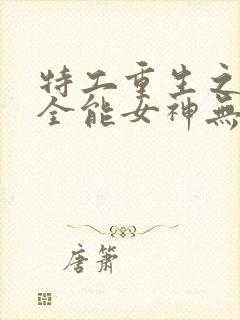 特工重生之
全能女神無
唐簫